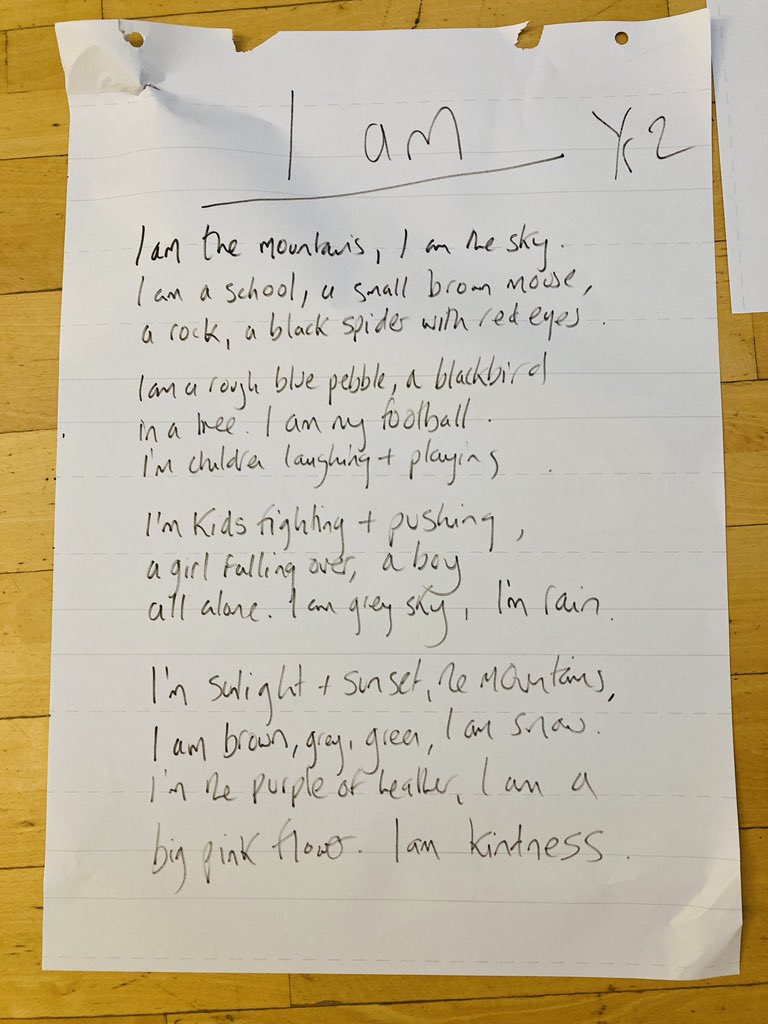 I am Yr 2
I am the mountains, I am the sky.
I am a school, a small brown mouse,
a rock, a black spider with red eyes.
I am a rough blue pebble, a blackbird
in a tree. I am my football.
I'm children laughing + playing.
I'm kids fighting + pushing,
a girl falling over, a boy
all alone. I am grey sky, I'm rain.
I'm sunlight + sunset, the mountains,
I am brown, grey, green, I am snow.
I'm the purple of heather, I am a
big pink flower. I am kindness.